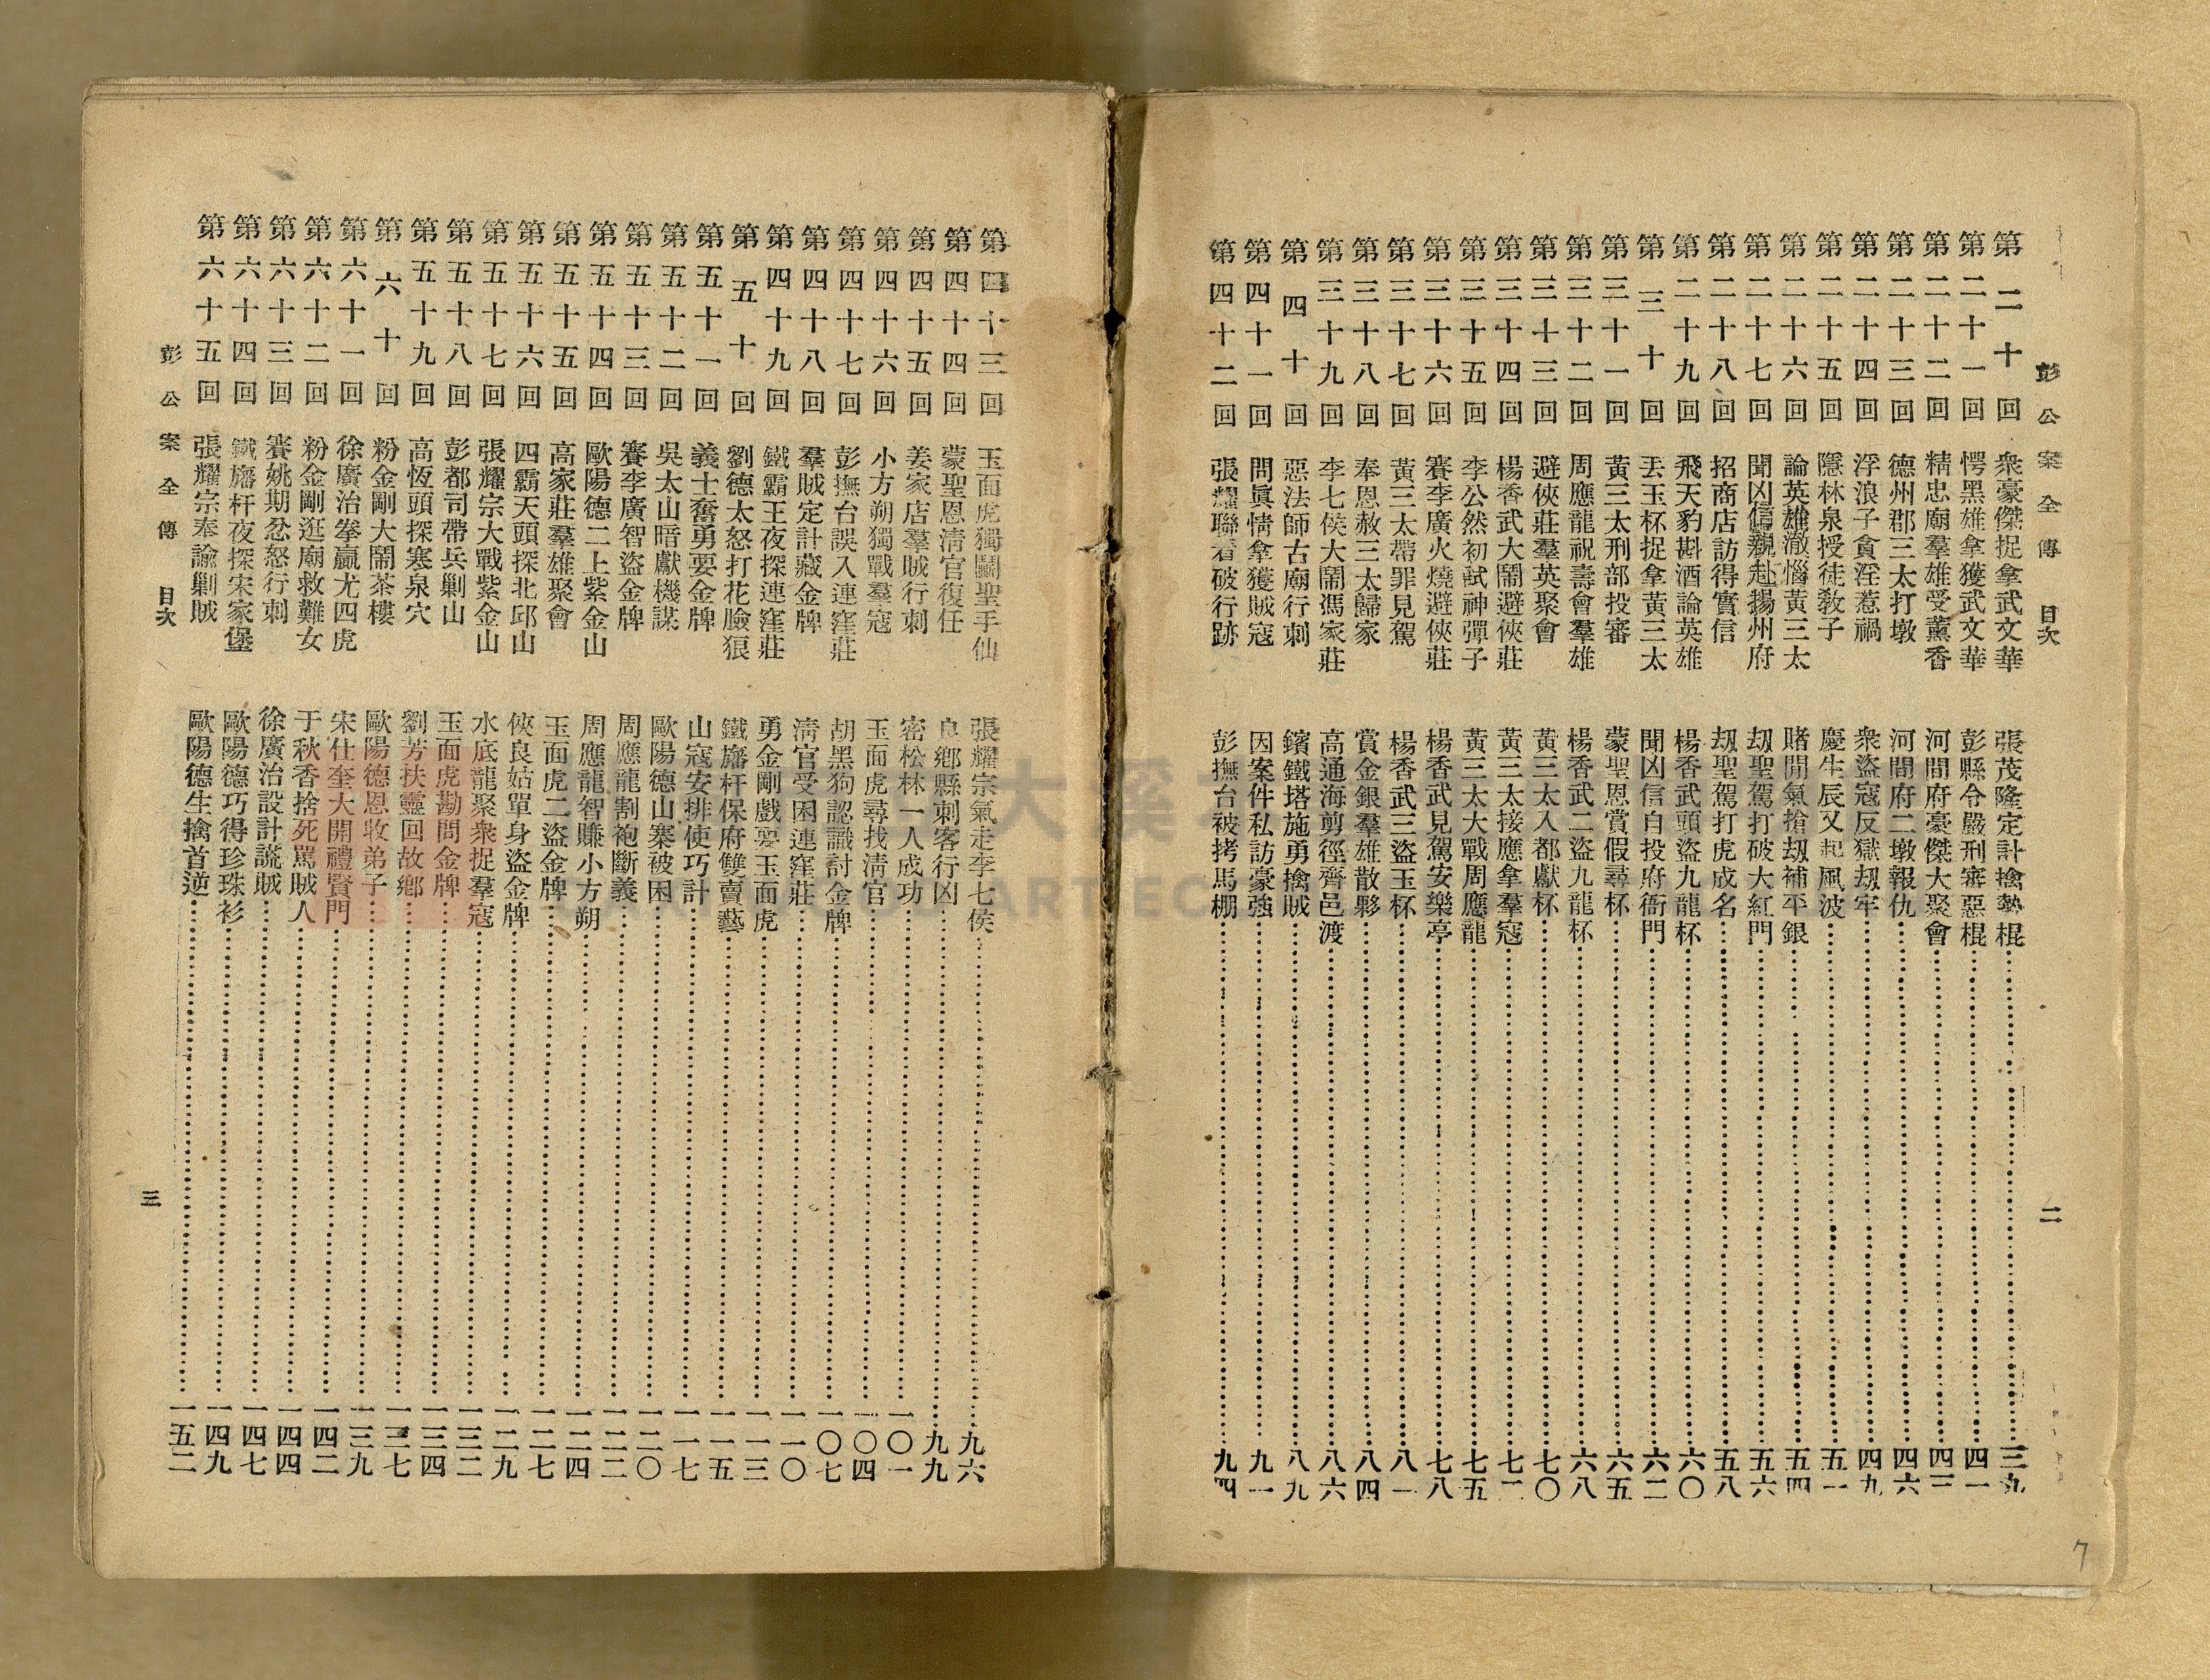 彭公案全傳 目次 二
第二十回 衆豪傑捉拿武文華 張茂隆定計擒勢棍 三九
第二十一回 愕黑雄拿獲武文華 彭縣令嚴刑審惡棍 四一
第二十二回 精忠廟羣雄受薰香 河間府豪傑大聚會 四三
第二十三回 德州郡三太打墩 河間府二墩報仇 四六
第二十四回 浮浪子貪淫惹禍 衆盜寇反獄刼牢 四九
第二十五回 隱林泉授徒敎子 慶生辰又起風波 五一
第二十六回 論英雄激惱黃三太 賭閒氣搶刼補平銀 五四
第二十七回 聞凶信親赴揚州府 刼聖駕打破大紅門 五六
第二十八回 招商店訪得實信 刼聖駕打虎成名 五八
第二十九回 飛天豹斟酒論英雄 楊香武頭盜九龍杯 六〇
第三十回 丟玉杯捉拿黃三太 聞凶信自投府衙門 六二
第三十一回 黃三太刑部投審 蒙聖恩賞假尋杯 六五
第三十二回 周應龍祝壽會羣雄 楊香武二盜九龍杯 六八
第三十三回 避俠莊羣英聚會 黃三太入都獻杯 七〇
第三十四回 楊香武大鬧避俠莊 黃三太接應拿羣寇 七二
第三十五回 李公然初試神彈子 黃三太大戰周應龍 七五
第三十六回 賽李廣火燒避俠莊 楊香武見駕安樂亭 七八
第三十七回 黃三太帶罪見駕 楊香武三盜玉杯 八一
第三十八回 奉恩赦三太歸家 賞金銀羣雄散夥 八四
第三十九回 李七侯大鬧馮家莊 高通海剪徑齊邑渡 八六
第四十回 惡法師古廟行刺 鑌鐵塔施勇擒賊 八九
第四十一回 問眞情拿獲賊寇 因案件私訪豪強 九一
第四十二回 張耀聯看破行跡 彭撫台被拷馬棚 九四
第四十三回 玉面虎獨鬭聖手仙 張耀宗氣走李七侯 九六
第四十四回 蒙聖恩清官復任 良鄉縣刺客行凶 九九
第四十五回 姜家店羣賊行刺 密松林一人成功 一〇一
第四十六回 小方朔獨戰羣寇 玉面虎尋找淸官 一〇四
第四十七回 彭撫台誤入連窪莊 胡黑狗認識討金牌 一〇七
第四十八回 羣賊定計藏金牌 淸官受困連窪莊 一一〇
第四十九回 鐵霸王夜探連窪莊 勇金剛戲耍玉面虎 一一三
第五十回 劉德太怒打花臉狼 鐵旛杆保府雙賣藝 一一五
第五十一回 義士奮勇要金牌 山寇安排使巧計 一一七
第五十二回 吳太山暗獻機謀 歐陽德山寨被困 一二〇
第五十三回 賽李廣智盜金牌 周應龍割袍斷義 一二二
第五十四回 歐陽德二上紫金山 周應龍智賺小方朔 一二四
第五十五回 高家莊羣雄聚會 玉面虎二盜金牌 一二七
第五十六回 四霸天頭探北邱山 俠良姑單身盜金牌 一二九
第五十七回 張耀宗大戰紫金山 水底龍聚衆捉羣寇 一三二
第五十八回 彭都司帶兵剿山 玉面虎勘問金牌 一三四
第五十九回 高恆頭探寒泉穴 劉芳扶靈回故鄉 一三七
第六十回 粉金剛大鬧茶樓 歐陽德恩收弟子 一三九
第六十一回 徐廣治拳贏尤四虎 宋仕奎大開禮賢門 一四二
第六十二回 粉金剛逛廟救難女 于秋香捨死罵賊人 一四四
第六十三回 賽姚期忿怒行刺 徐廣治設計謊賊 一四七
第六十四回 鐵旛杆夜探宋家堡 歐陽德巧得珍珠衫 一四九
第六十五回 張耀宗奉諭剿賊 歐陽德生擒首逆 一五二
彭公案全傳 目次 三
7